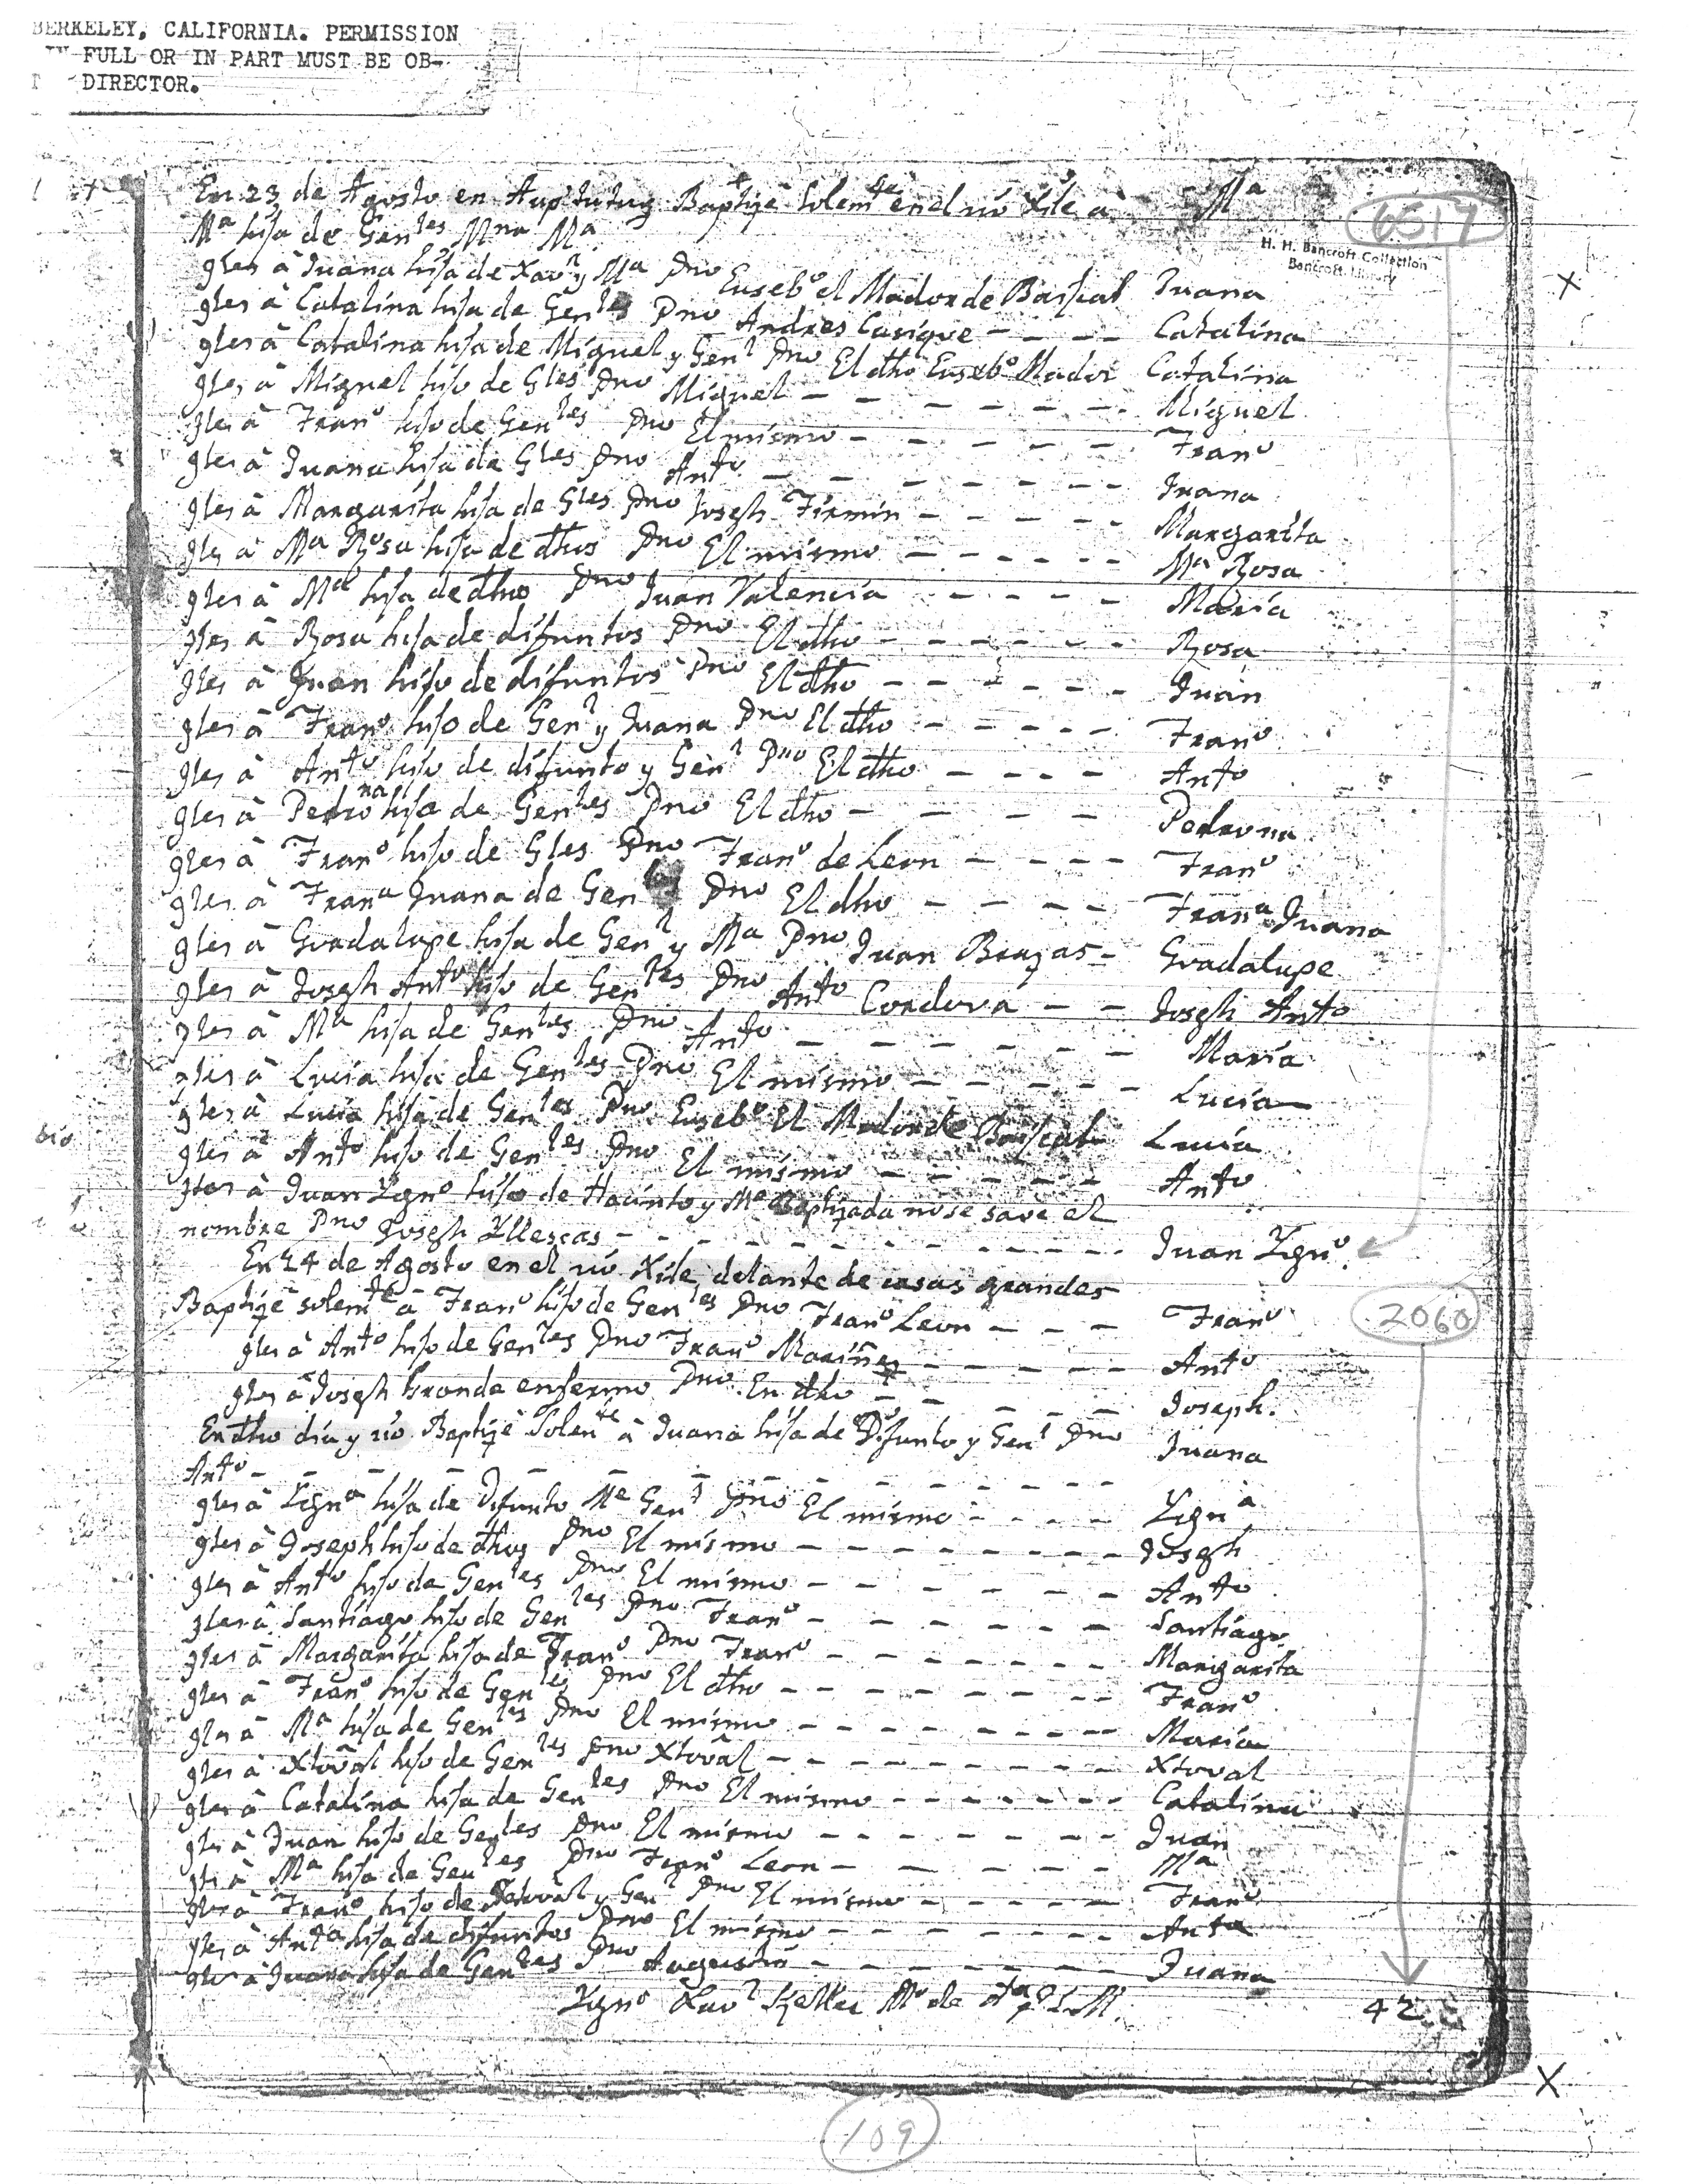 BERKELEY, CALIFORNIA. PERMISSION
FULL OR IN PART MUST BE OB-
DIRECTOR.
En 23 de Agosto en Baptizè Solemte en el rio Xila à Ma
Ma hija de Gentes Mna Ma
6517
H. H. Bancroft Collection
Bancroft Library
X
gler à Juana hija de Xavr y Ma Pno Eusebo el Mador de Juana
gler à Catalina hija de Gentes Pno Andres Casique - - - - Catalina
gler à Catalina hija de Miguel y Genl Pno El dho Eusebo Mador Catalina
gler à Miguel hijo de Gles Pno Miguel - - - - - - - Miguel
gler à Frano hijo de Gentes Pno El mismo - - - - - - Frano
gler à Juana hija de Gles Pno Anto - - - - - - - Juana
gler à Margarita hija de Gles Pno Joseph Firmin - - - - - Margarita
gler à Ma Rosa hija de dhos Pno El mismo - - - - - - Ma Rosa
gler à Ma hija de dho Pno Juan Valencia - - - - - María
gler à Rosa hija de difuntos Pno El dho - - - - - - Rosa
gler à Juan hijo de difuntos Pno El dho - - - - - - Juan
gler à Frano hijo de Genl y Juana Pno El dho - - - - - Frano
gler à Anto hijo de difunto y Genl Pno El dho - - - - Anto
na
gler à Pedro hija de Gentes Pno El dho - - - - - Pedrona
gler à Frano hijo de Gles Pno Frano de Leon - - - - Frano
gler à Frana Juana de Gentes Pno El dho - - - - Frana Juana
gler à Guadalupe hija de Genl y Ma Pno Juan Brazas - Guadalupe
gler à Joseph Anto hijo de Gentes Pno Anto Cordova - - Joseph Anto
gler à Ma hija de Gentes Pno Anto - - - - - - - María
gler à Lucia hija de Gentes Pno El mismo - - - - - - Lucia
gler à Lucia hija de Gentes Pno Eusebo El Mador de Lucia
gler à Anto hijo de Gentes Pno El mismo - - - - - - Anto
gler à Juan Ygno hijo de Hacinto y Ma Baptizada no se save el
nombre Pno Joseph Yllescas - - - - - - - - - - - Juan Ygno
En 24 de Agosto en el rio Xila delante de casas grandes
Baptizè solemte à Frano hijo de Gentes Pno Frano Leon - - - Frano
2060
gler à Anto hijo de Gentes Pno Frano - - - - - - Anto
gler à Joseph Grande enfermo Pno En dho - - - - - Joseph.
En dho dia y rio Baptizè Solente à Juana hija de Difunto y Genl Pno Juana
Anto - - - - - - - - - - - - - -
gler à Ygna hija de Difunto Me Genl Pno El mismo - - - - Ygna
gler à Joseph hijo de dhos Pno El mismo - - - - - - - - - Joseph
gler à Anto hijo de Gentes Pno El mismo - - - - - - - Anto
gler à Santiago hijo de Gentes Pno Frano - - - - - - - Santiago
gler à Margarita hija de Frano Pno Frano - - - - - - - - Margarita
gler à Frano hijo de Gentes Pno El dho - - - - - - - - Frano
gler à Ma hija de Gentes Pno El mismo - - - - - - - - - María
gler à Xtoval hijo de Gentes Pno Xtoval - - - - - - - - - Xtoval
gler à Catalina hija de Gentes Pno El mismo - - - - - - - Catalina
gler à Juan hijo de Gentes Pno El mismo - - - - - - - Juan
gler à Ma hija de Gentes Pno Frano Leon - - - - - - Ma
gler à Frano hijo de Xtoval y Genl Pno El mismo - - - - - - Frano
gler à Anta hija de difuntos Pno El mismo - - - - - - - - Anta
gler à Juana hija de Gentes Pno Augustin - - - - - - - Juana
Ygno Xavr Keller Mo de
42
X
109